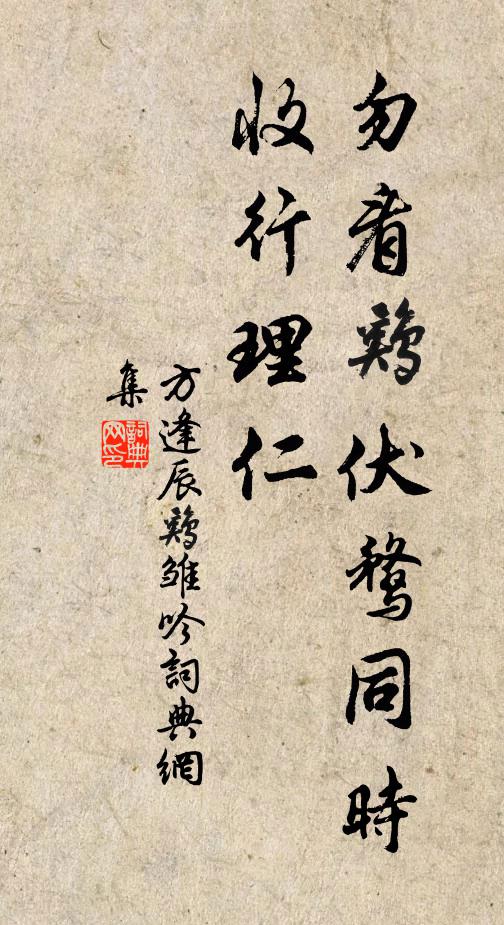 勿看鷄伏鶩同時
收行理仁
方逢辰鷄雛吟詞典網
集
詞典
网印